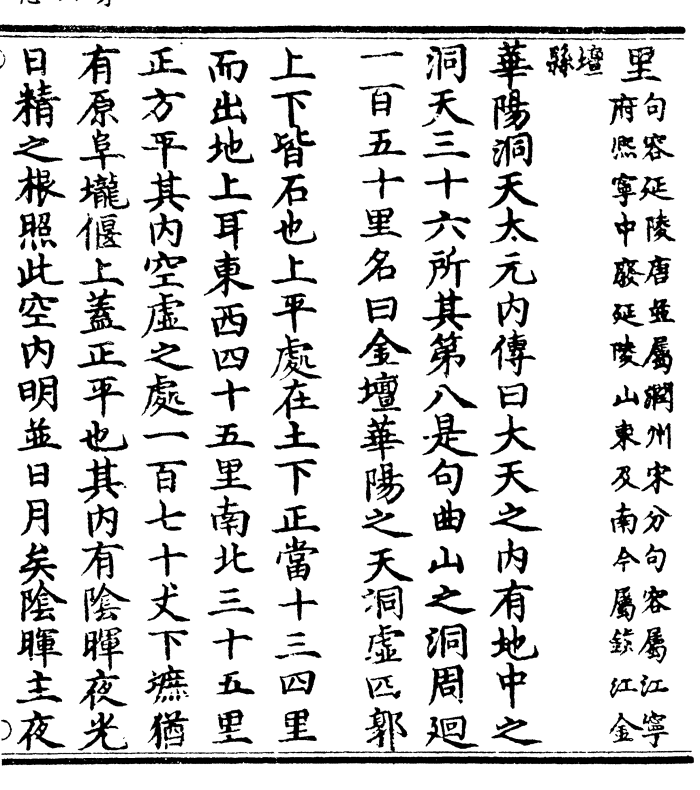 里句容延陵唐並屬潤州宋分句容屬江寧
府熈寧中廢延陵山東及南今屬鎮江金
壇
縣
華陽洞天太元内傳曰大天之内有地中之
洞天三十六所其第八是句曲山之洞周廻
一百五十里名曰金壇華陽之天洞虛四郭
上下皆石也上平處在土下正當十三四里
而出地上耳東西四十五里南北三十五里
正方平其内空虛之處一百七十丈下墌猶
有原阜壠偃上蓋正平也其内有陰暉夜光
日精之根照此空内明並日月矣陰暉主夜